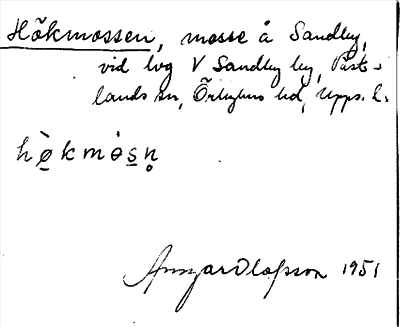 Hökmossen, mosse å Sandby,
vid lvg V Sandby by, Väst-
lands sn, Örbyhus hd, Upps. l.
hö̀kmȯsn̥
Ann-Mar Olofsson 1951